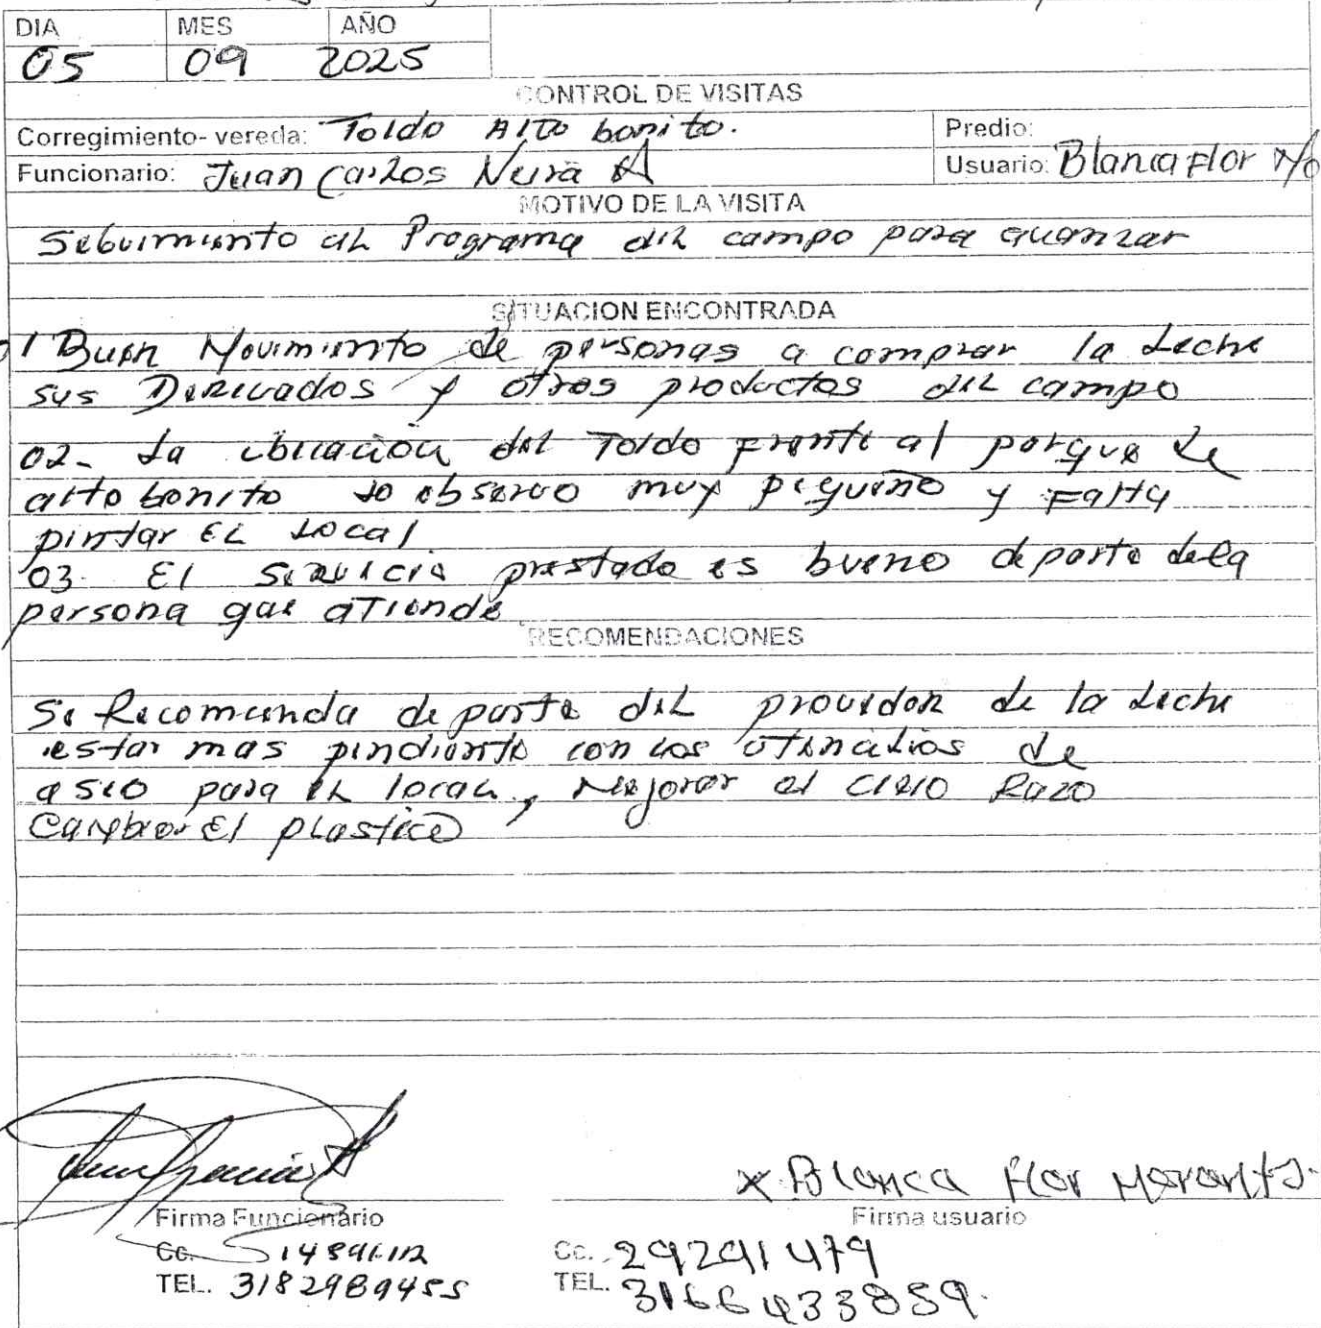 DIA MES AÑO
05 09 2025
CONTROL DE VISITAS
Corregimiento- vereda: Toldo Alto bonito. Predio:
Funcionario: Juan Carlos Neira A Usuario: Blanca Flor
MOTIVO DE LA VISITA
Seguimiento al Programa del campo para
SITUACION ENCONTRADA
01 Buen Movimiento de personas a comprar la Leche
sus Derivados y otros productos del campo
02- La ubicación del Toldo frente al parque de
alto bonito lo observo muy pequeño y Falta
pintar EL Local
03. El Servicio prestado es bueno de parte dela
persona que atiende
RECOMENDACIONES
Se Recomienda de parte del proveedor de la Leche
estar mas pendiente con los de
aseo para el local, Mejorar el Cielo Razo
Cambiar El plastico
Firma Funcionario Firma usuario
Cc. Cc. 29291479
TEL. 3182989455 TEL. 3166433859.
x Blanca Flor